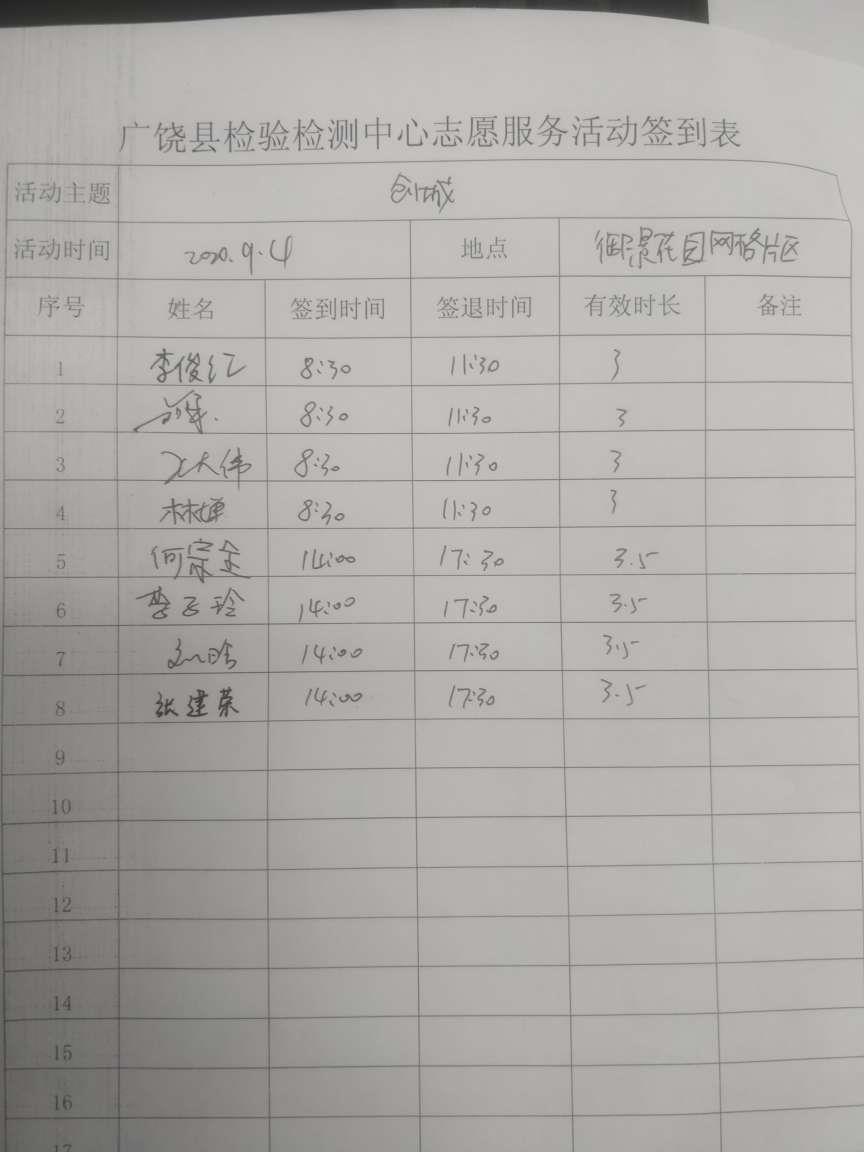 广饶县检验检测中心志愿服务活动签到表
活动主题 创城
活动时间 2020.9.4 地点 御景花园网格片区
序号 姓名 签到时间 签退时间 有效时长 备注
1 李俊江 8:30 11:30 3
2 8:30 11:30 3
3 大伟 8:30 11:30 3
4 林 8:30 11:30 3
5 何宗全 14:00 17:30 3.5
6 李玉玲 14:00 17:30 3.5
7 刘晗 14:00 17:30 3.5
8 张建荣 14:00 17:30 3.5
9
10
11
12
13
14
15
16
17